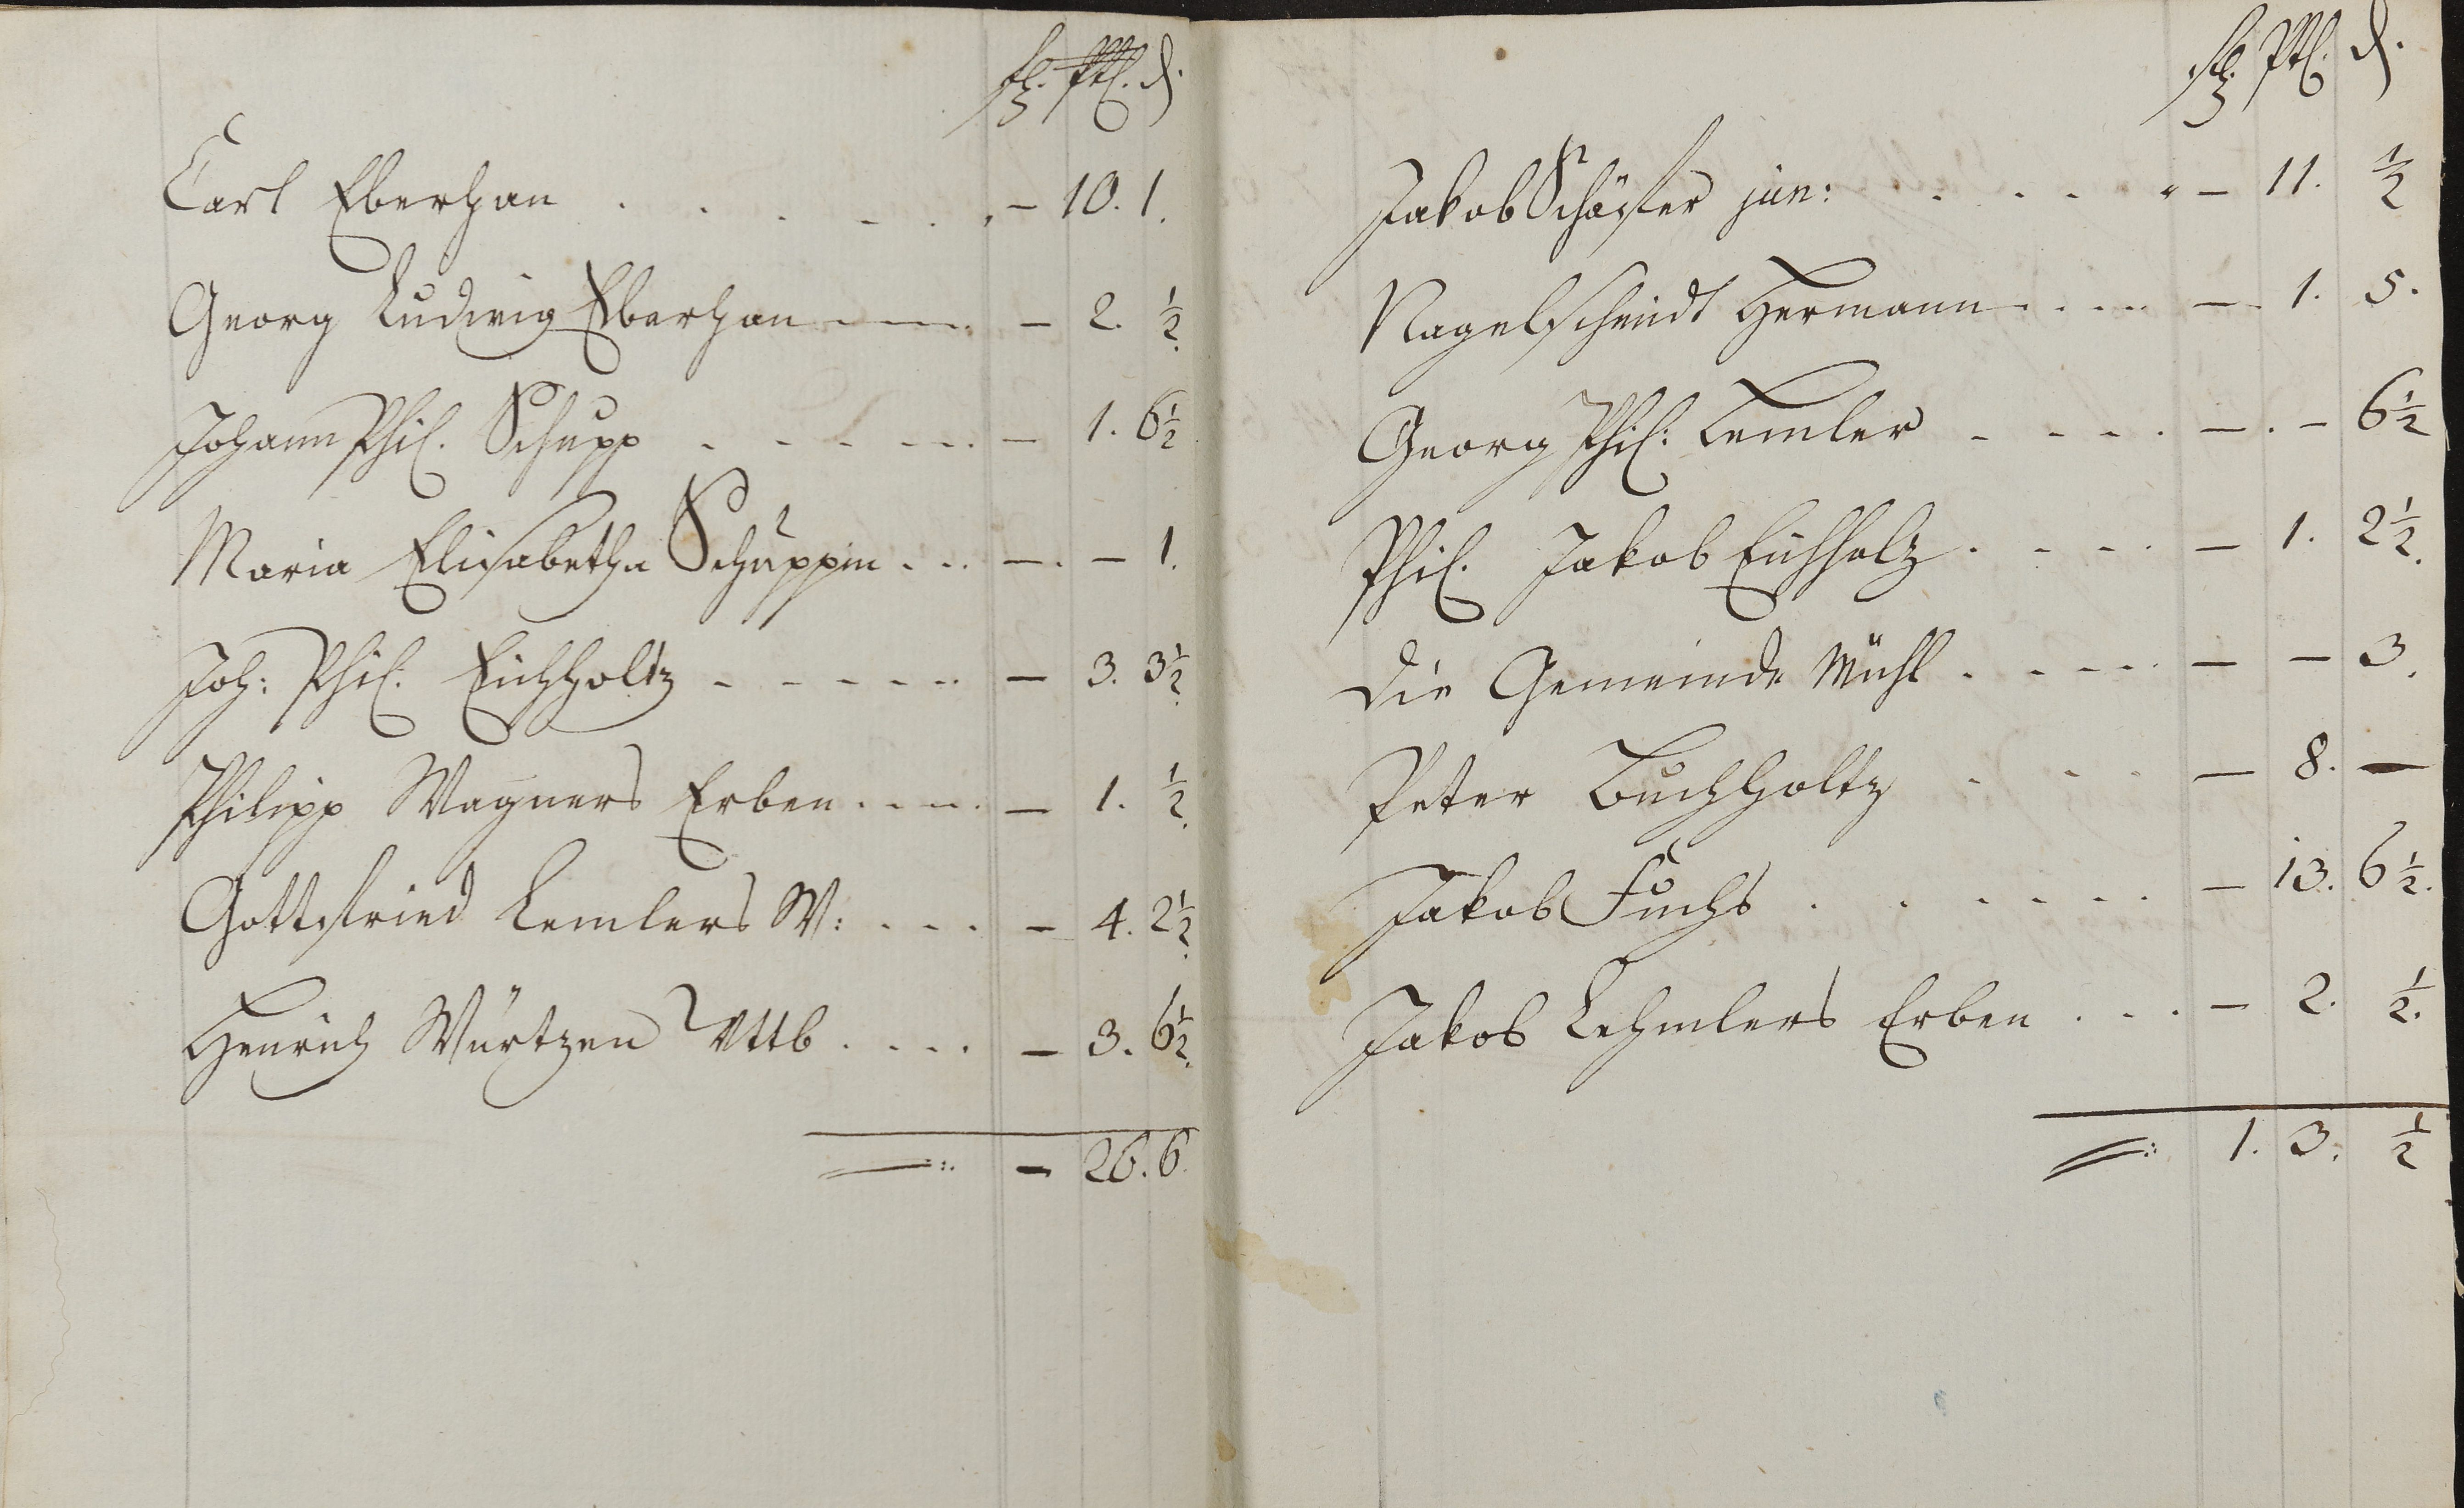 fl. Btz. d.
Carl Eberhan . . . . . . - 10. 1.
Georg Ludwig Eberhan - - - - 2. ½.
Johann Phil. Schupp - - - - - - 1. 6½
Maria Elisabetha Schuppin . . . - . - 1.
Joh: Phil. Eichholtz - - - - - - 3. 3½.
Philipp Wagners Erben . - - . - 1. ½.
Gottfried Lemlers W: . . . - 4. 2½.
Henrich Würtzen Wttb . . . . - 3. 6½.
- 26. 6.
Jakob Schäfer jun: . . . . - 11. ½
Nagelschmidt Hermann . . . . - 1. 5.
Georg Phil: Lemler - - - . - . - 6½
Phil. Jakob Eichholz . - - - . - 1. 2½.
Die Gemeinde Mühl . - - - . - - 3.
Peter Buchholtz - - - - 8. -
Jakob Fuchs . . . - - - . - 13. 6½.
Jakob Lehmlers Erben . . . - 2. ½.
1. 3. ½